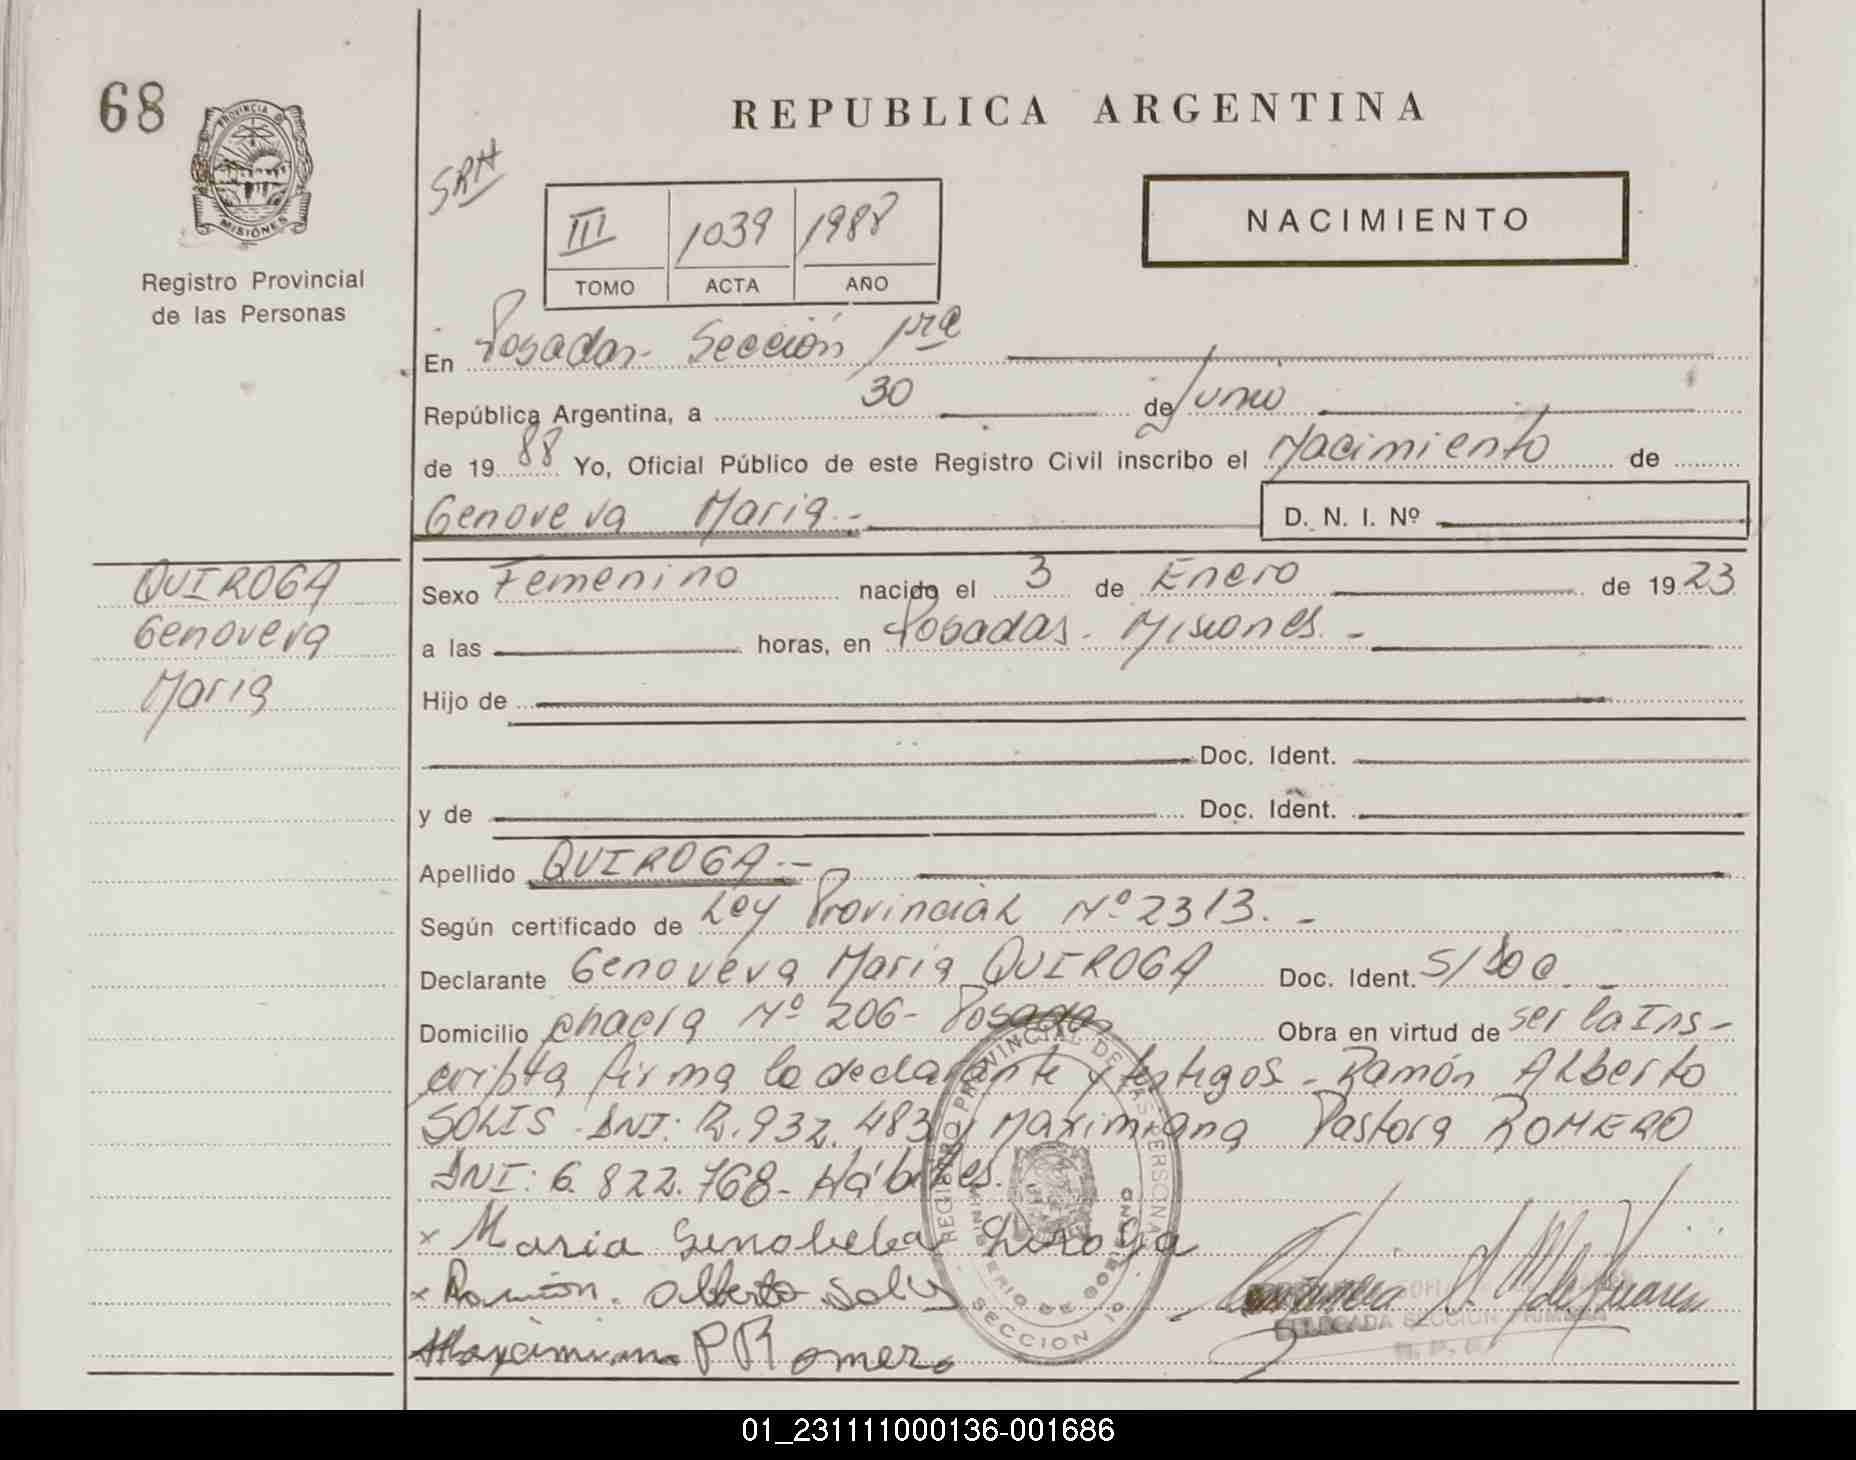 68
PROVINCIA
MISIONES
Registro Provincial
de las Personas
REPUBLICA ARGENTINA
SRH
III 1039 1988
TOMO ACTA AÑO
NACIMIENTO
En Posadas - Sección 1ra
República Argentina, a 30 de Junio
de 1988 Yo, Oficial Público de este Registro Civil inscribo el Nacimiento de
Genoveva Maria.-
D. N. I. Nº
QUIROGA
Genoveva
Maria
Sexo Femenino nacido el 3 de Enero de 1923
a las horas, en Posadas - Misiones. -
Hijo de
Doc. Ident.
y de Doc. Ident.
Apellido QUIROGA.-
Según certificado de Ley Provincial Nº 2313. -
Declarante Genoveva Maria QUIROGA Doc. Ident. S/Doc.
Domicilio chacra Nº 206 - Posadas Obra en virtud de ser la Ins-
cripta firma la declarante y testigos - Ramón Alberto
SOLIS - DNI: 12.932.483 y Maximiana Pastora ROMERO
DNI: 6.822.768 - Hábiles.
x Maria Genobeba
x Ramón. Alberto Solis
P Romero
REGISTRO PROVINCIAL DE LAS PERSONAS
MINISTERIO DE GOBIERNO
SECCION 1ª
DELEGADA SECCION PRIMERA
01_231111000136-001686